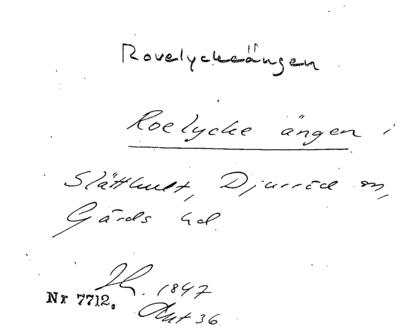 Rovelyckeängen
Roelycke ängen i
Slätthult, Djurröd sn,
Gärds hd.
1847
Nr 7712.
Akt 36